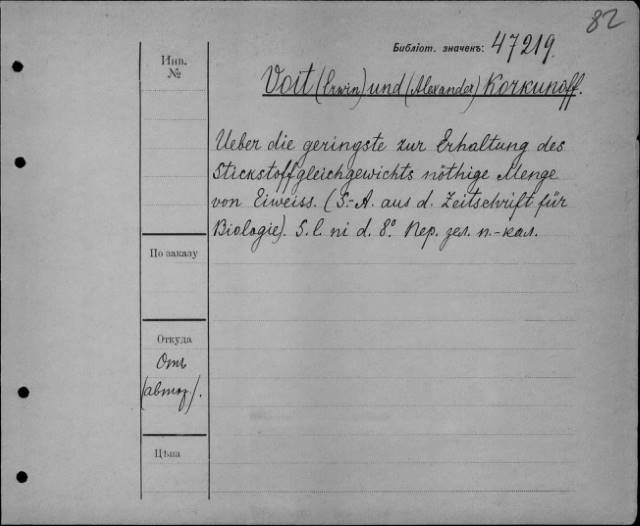 82
Библіот. значекъ: 47219.
Инв.
№
Voit (Erwin) und (Alexander) Korkunoff.
Ueber die geringste zur Erhaltung des
Stickstoffgleichgewichts nöthige Menge
von Eiweiss. (S.-A. aus d. Zeitschrift für
Biologie). S. l. ni d. 8° Пер. зел. п.-кал.
По заказу
Откуда
Отъ
(автор).
Цѣна